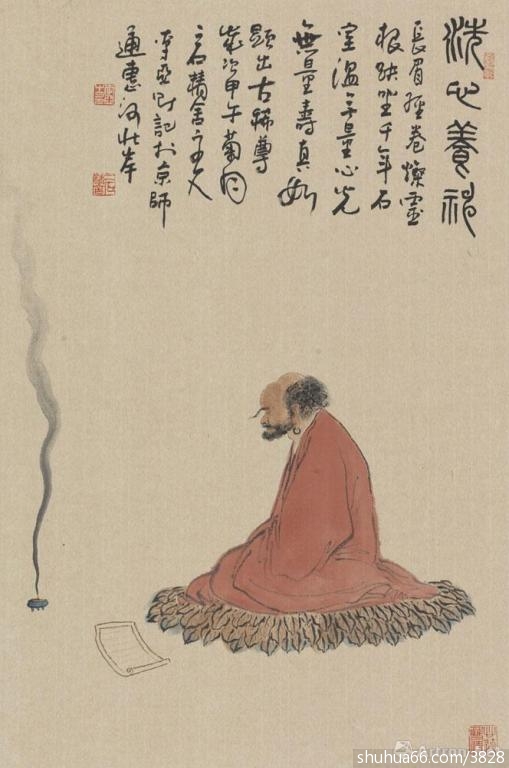 洗心養神
長眉經卷燦靈
根趺坐千年石
室溫无量心光
無量壽真如
題出古稀尊
歲次甲午菊月
石舍主人
記於京師
通惠河北岸
shuhua66.com/3828